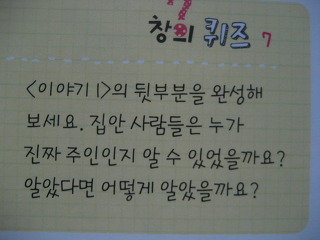 창의 퀴즈 7
<이야기 1>의 뒷부분을 완성해
보세요. 집안 사람들은 누가
진짜 주인인지 알 수 있었을까요?
알았다면 어떻게 알았을까요?